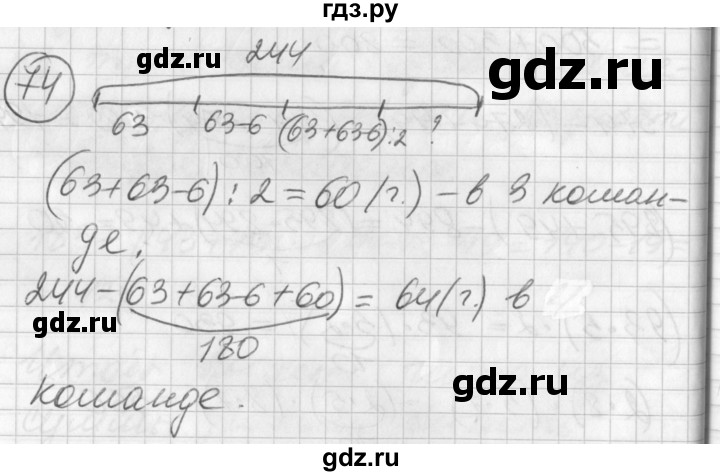 гдз.ру
74
244
63 63-6 (63+63-6):2 ?
(63+63-6):2=60(г.) – в 3 коман-
де.
244-(63+63-6+60)= 64(г.) в
180
команде.
gdz.ru
gdz.ru
gdz.ru
gdz.ru
gdz.ru
gdz.ru